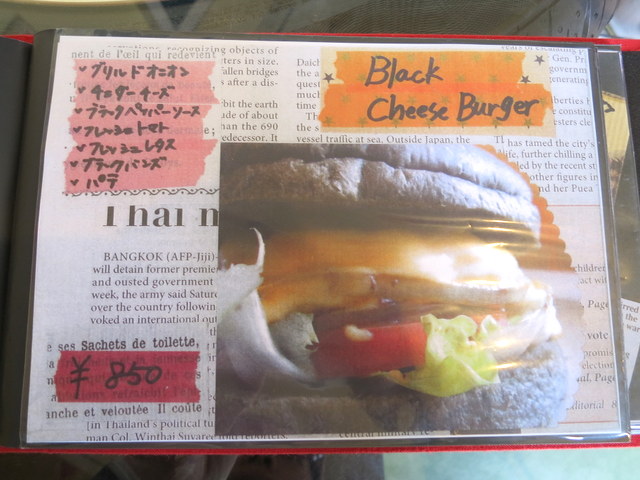 nent de Pœil qui redevient
recognizing objects of
ters in size.
allen bridges
s after a dis-
bit the earth
ide of about
han the 690
edecessor. It
グリルドオニオン
チェダーチーズ
ブラックペッパーソース
フレッシュトマト
フレッシュレタス
ブラックバンズ
パテ
Black
Cheese Burger
vessel traffic at sea. Outside Japan, the
TI has tamed the city's
life, further chilling a
led by the recent st
other figures in
nd her Puea
Thai
BANGKOK (AFP-Jiji)
will detain former premie
and ousted government
week, the army said Satur
over the country following
voked an international out
e ses Sachets de toilette,
¥ 850
anche et veloutée Il coûte
(in Thailand's political tu
man Col. Winthai Suvaree told reporters.
central
children
Page
vote
promis
Page
ditorial 8